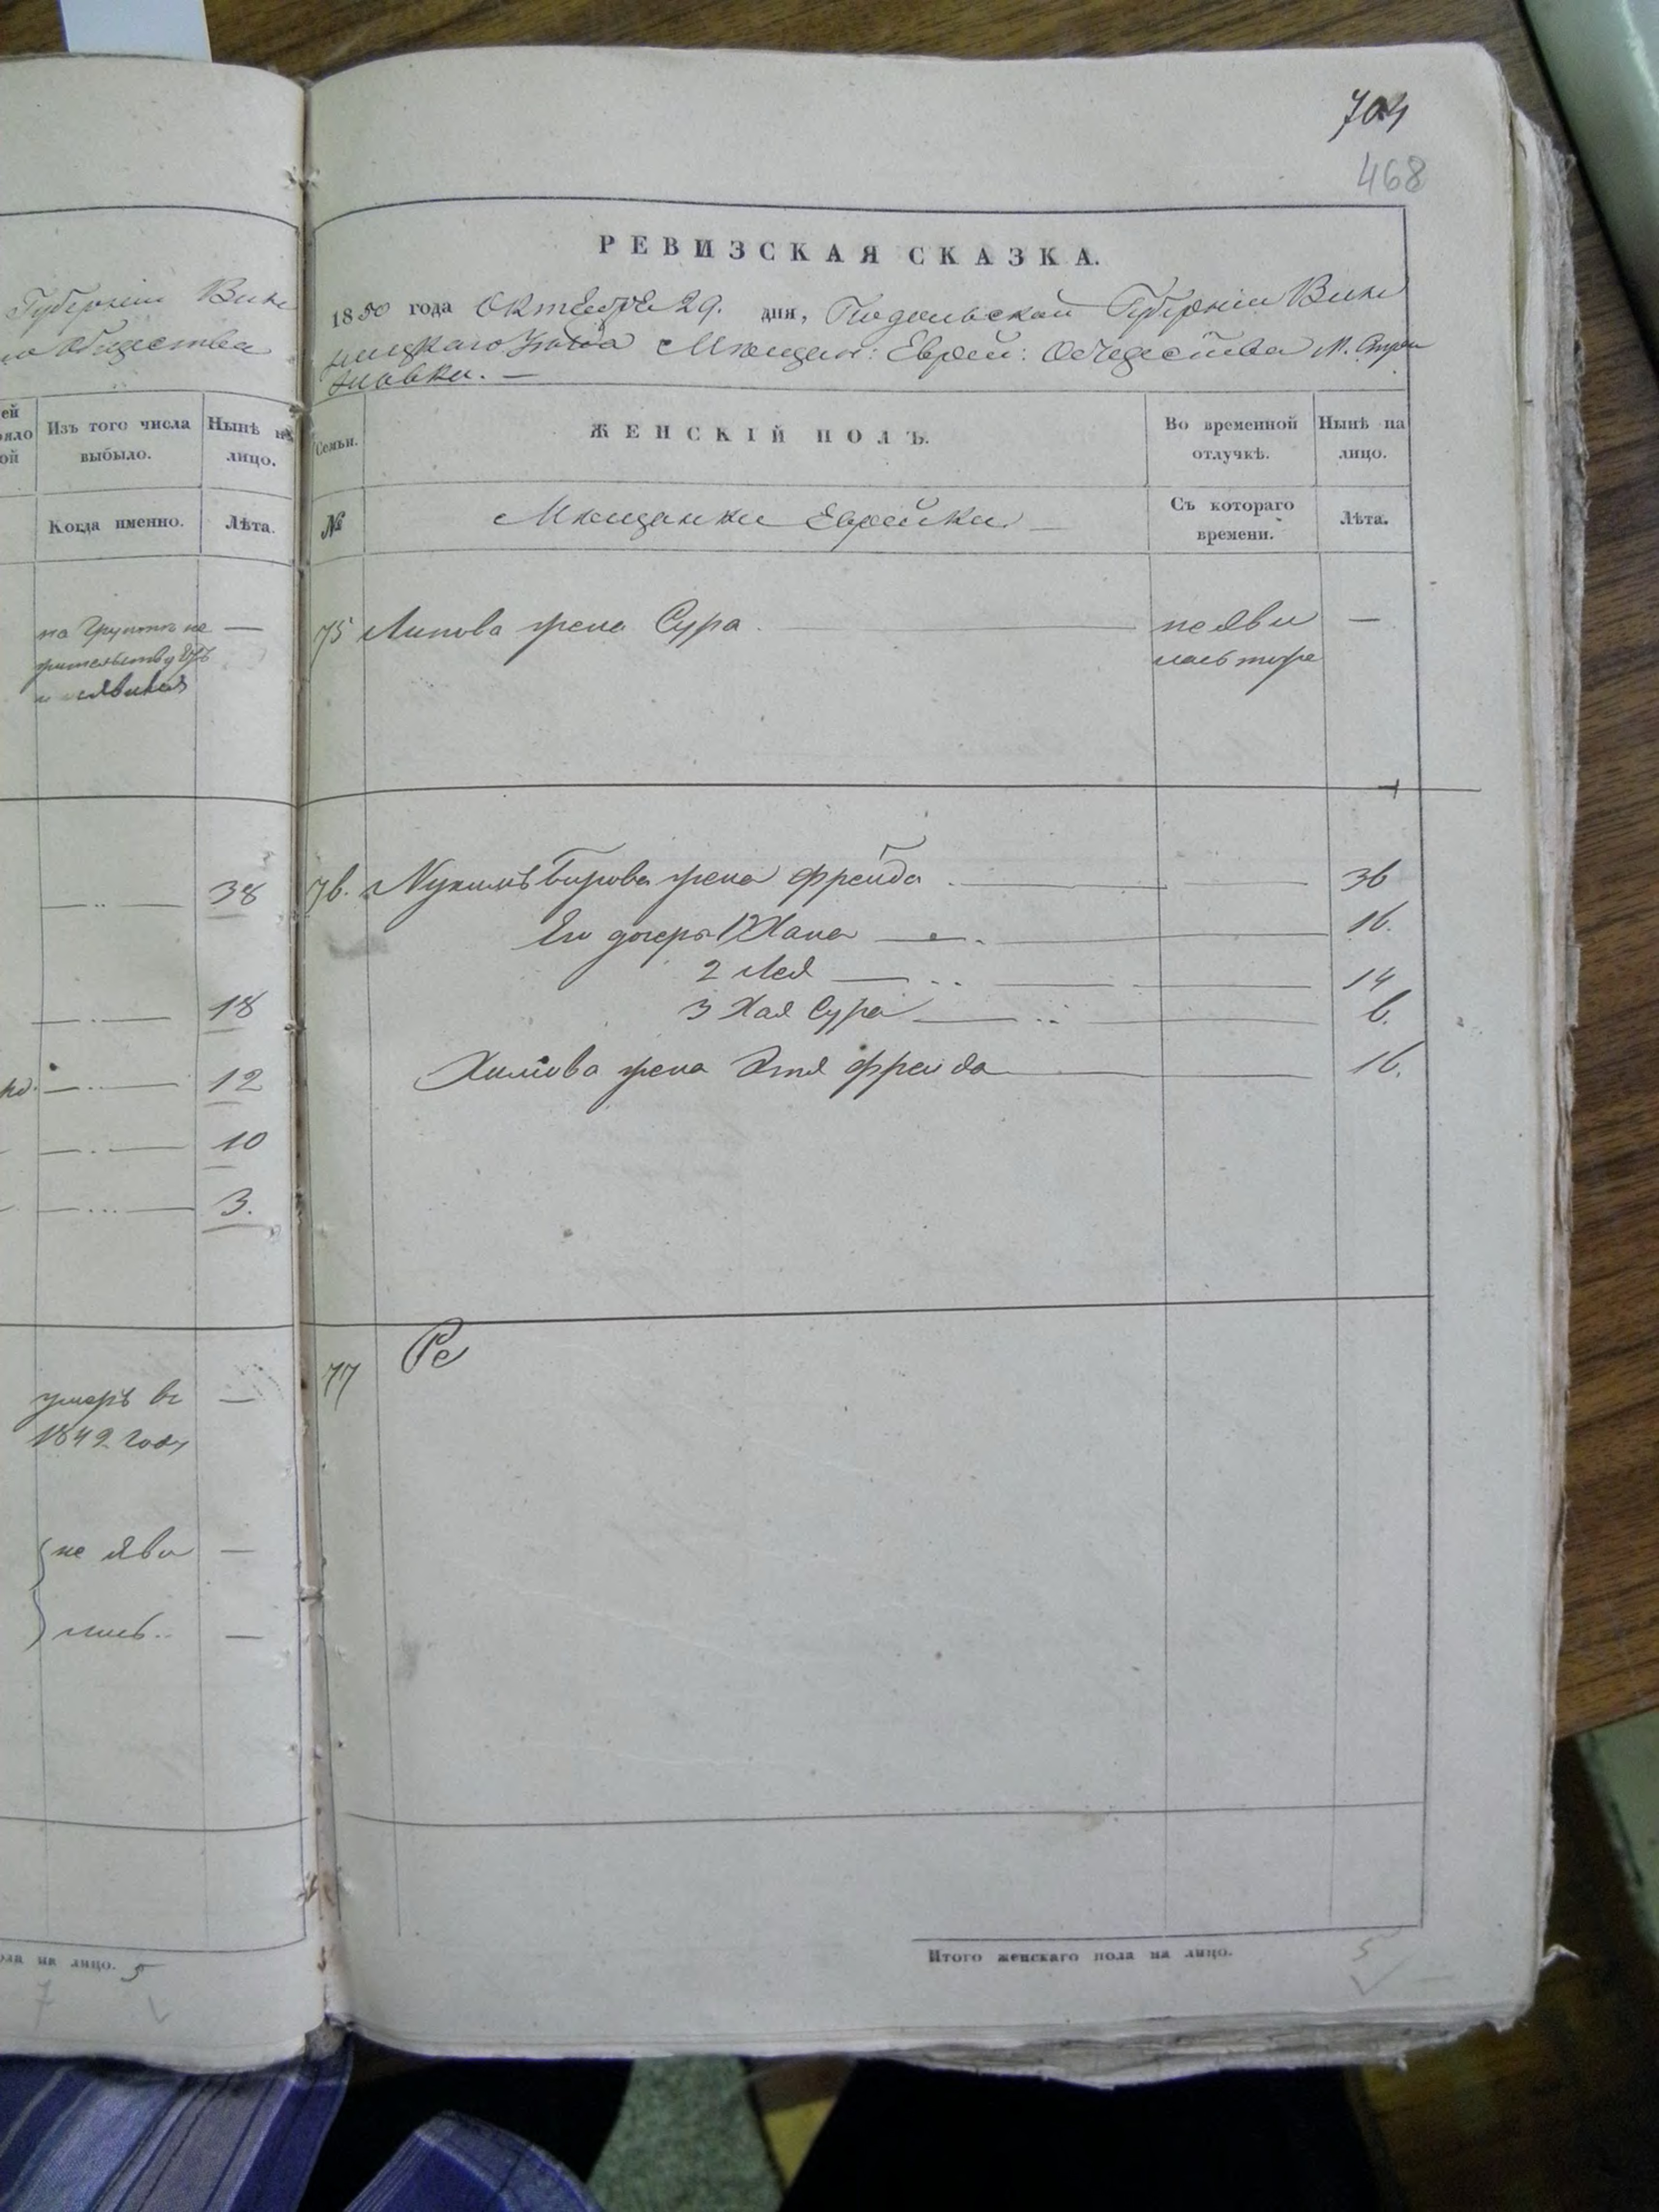 704
468
Губерніи Вин
Общества
Изъ того числа выбыло.
Нынѣ на лицо.
Когда именно.
Лѣта.
не
и явился
38
18
12
10
3.
умеръ въ
1849 году
не яви
лись..
на лицо. 5
7
РЕВИЗСКАЯ СКАЗКА.
1850 года Октября 29. дня, Подольской Губерніи Вин
ницкаго уѣзда Мѣщан: Еврей: Общества М.
Семьи.
ЖЕНСКІЙ ПОЛЪ.
Во временной отлучкѣ.
Нынѣ на лицо.
№
Мѣщанки Еврейки
Съ котораго времени.
Лѣта.
75 жена Сура не яви —
лась тоже
76. жена Фрейда 36
Его дочери 1 Хана 16.
2 Лея 14
3 Хая Сура 6.
жена Этя Фрейда 16.
77 Ре
Итого женскаго пола на лицо. 5